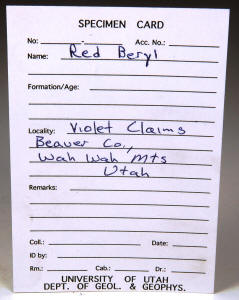 SPECIMEN CARD
No: Acc. No.:
Name: Red Beryl
Formation/Age:
Locality: Violet Claims
Beaver Co.,
Wah Wah Mts
Utah
Remarks:
Coll.: Date:
ID by:
Rm.: Cab.: Dr.:
UNIVERSITY OF UTAH
DEPT. OF GEOL. & GEOPHYS.